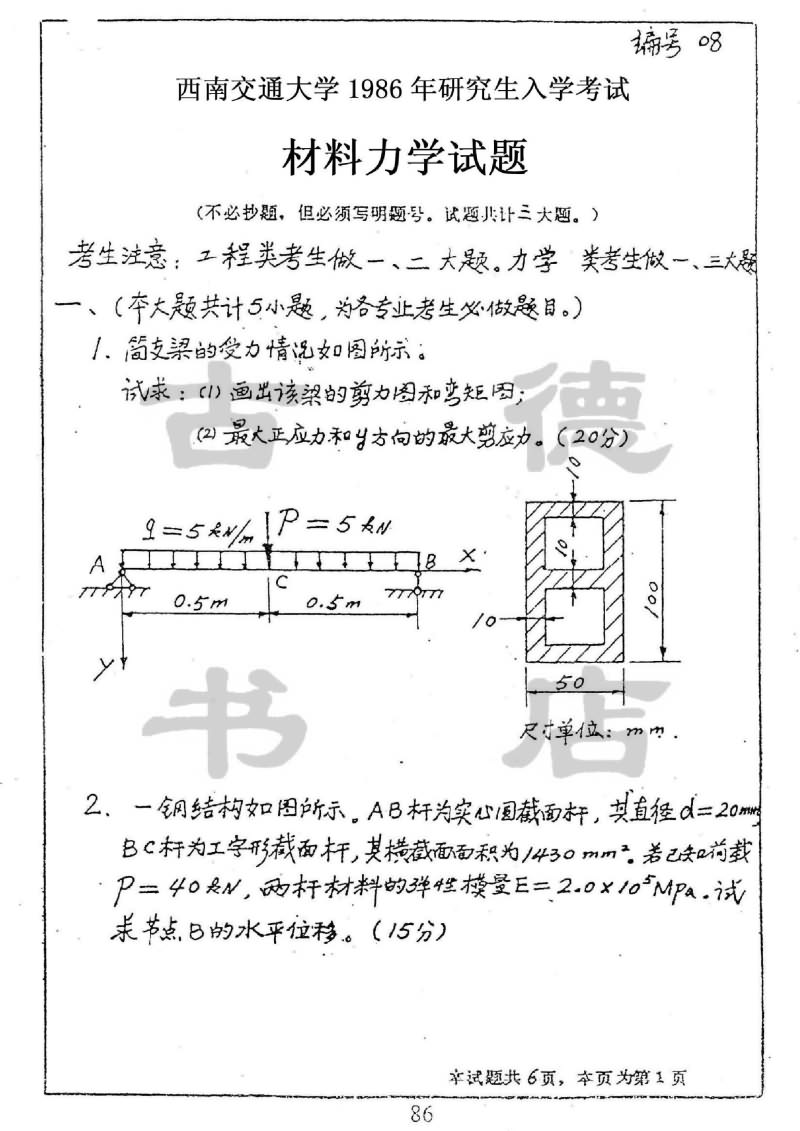 编号 08
西南交通大学 1986 年研究生入学考试
材料力学试题
(不必抄题，但必须写明题号。试题共计三大题。)
考生注意：工程类考生做一、二大题。力学 类考生做一、三大题
一、(本大题共计5小题，为各专业考生必做题目。)
1. 简支梁的受力情况如图所示。
试求：(1) 画出该梁的剪力图和弯矩图；
(2) 最大正应力和y方向的最大剪应力。(20分)
q=5kN/m P=5kN
A B X
C
0.5m 0.5m
y
10
10
10
100
50
尺寸单位：mm.
2. 一钢结构如图所示。AB杆为实心圆截面杆，其直径d=20mm,
BC杆为工字形截面杆，其横截面面积为1430mm²。若已知荷载
P=40kN，两杆材料的弹性模量E=2.0×10⁵MPa。试
求节点B的水平位移。(15分)
本试题共6页，本页为第1页
86
古德
书店